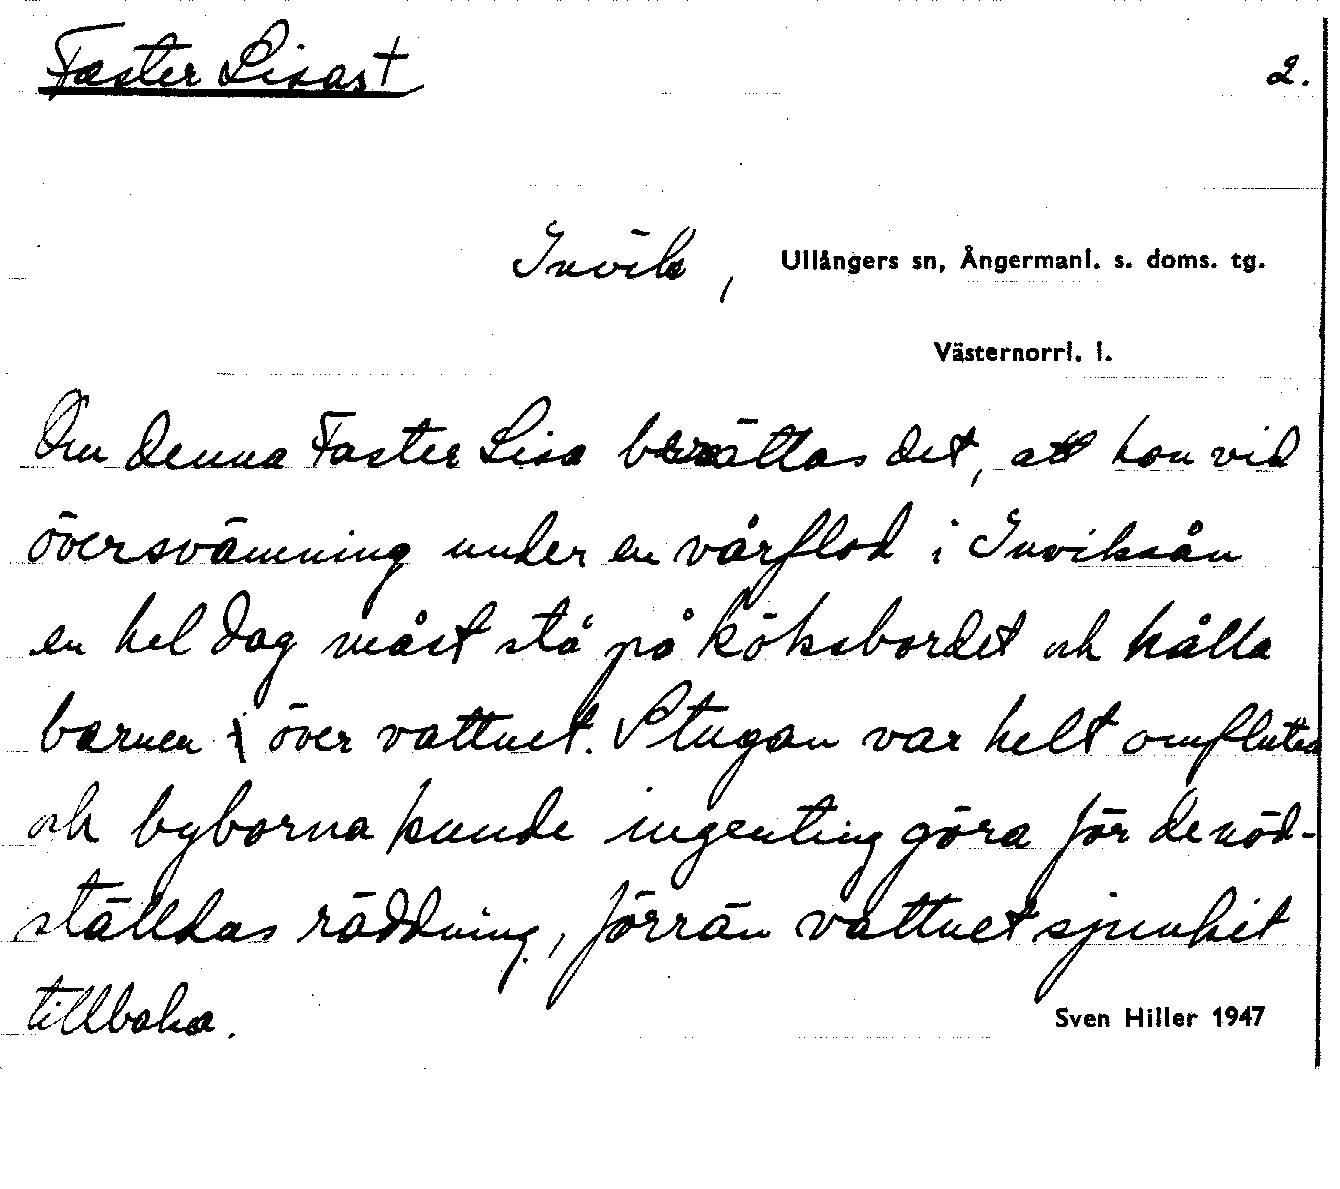 Faster Lisas †
2.
Invik,
Ullångers sn, Ångermanl. s. doms. tg.
Västernorrl. l.
Om denna Faster Lisa berättas det, att hon vid
översvämning under en vårflod i Inviksån
en hel dag måst stå på köksbordet och hålla
barnen över vattnet. Stugan var helt omfluten
och byborna kunde ingenting göra för de nöd-
ställdas räddning, förrän vattnet sjunkit
tillbaka.
Sven Hiller 1947